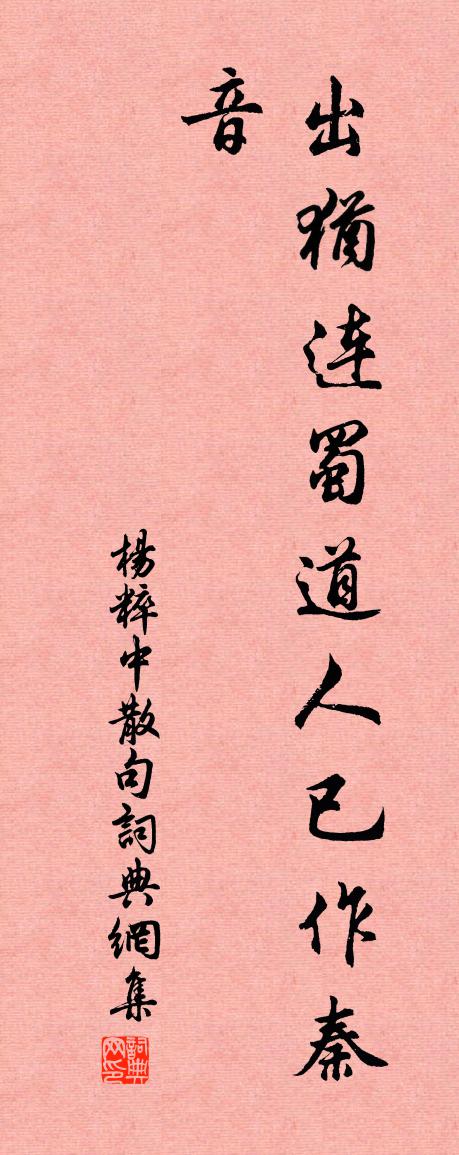 出猶連蜀道人已作秦
音
楊粹中散句詞典網集
詞典
网印